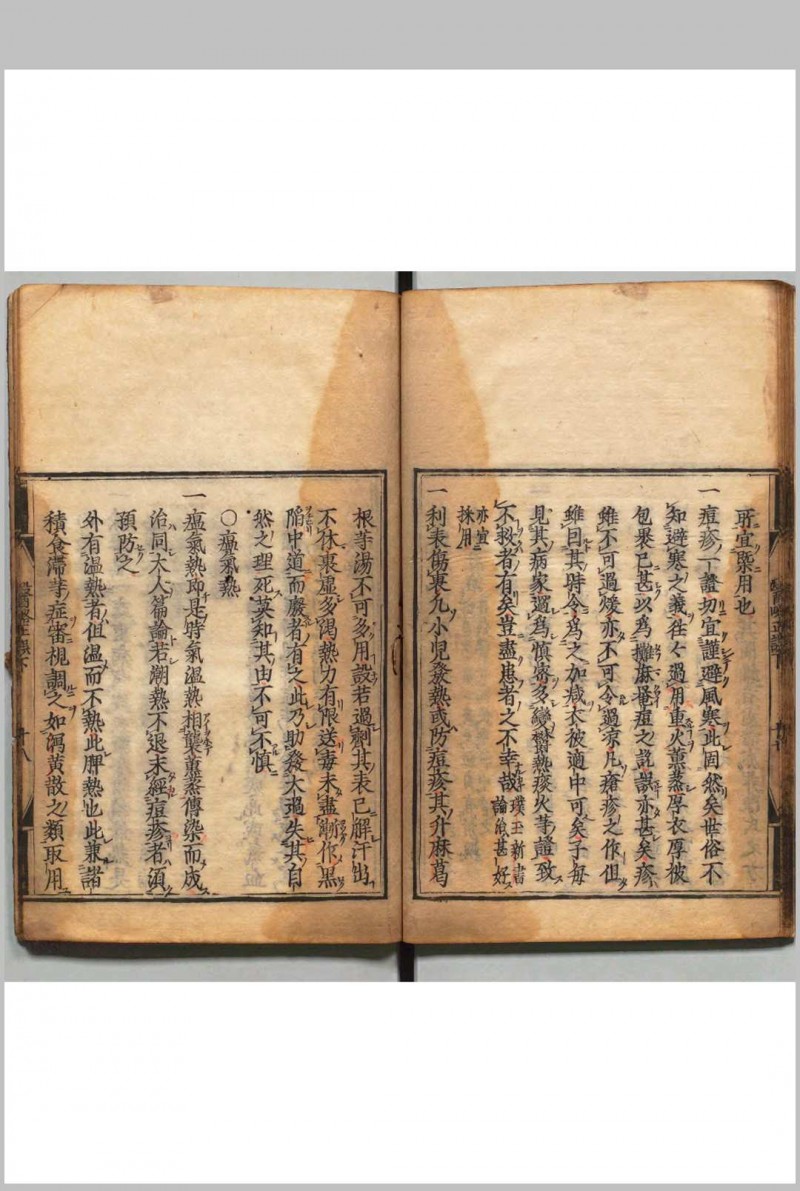 所宜槩用也
一痘疹一證切宜謹避風寒此固然矣世俗不
知避寒之義徃々過用重火薫蒸厚衣厚被
包褁已甚以為攤痲擔痘之說誤亦甚矣疹
雖不可過煖亦不可令過凉凡瘡疹之作但
維囙其時令為之加减衣被適中可矣予每
見其病家過為慎密多變欝熱痰火䓁證致
不救者有矣豈盡患者之不幸哉 璞玉新書
論㝡甚好
亦宜
採用
一利表傷裏凢小児發熱或防痘疹其升麻葛
根䓁湯不可多用設若過劑其表已解汗出
不休裏虛多渴熱力有限送毒未盡漸作黒
陷中道而廢者有之此乃助發太過失其自
然之理死莫知其由不可不慎
〇瘟氣熱
一瘟氣熱即是時氣溫熱相襲薫蒸傳染而成
治同大人篇論若潮熱不退未經痘疹者須
預防之
外有温熱者但温而不熱此脾熱也此兼諸
積食滯䓁症審視調之如瀉黄散之類取用